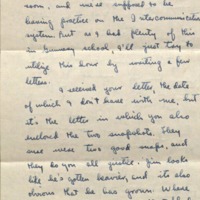 soon, and we're supposed to be
having practice on the Intercommunication
system. But as I had plenty of this
in Gunnery school, I'll just try to
utilize this hour by writing a few
letters.
I received your letter, the date
of which I don't have with me, but
it's the letter in which you also
enclosed the two snapshots. They
are were two good snaps, and
they do you all justice. Jim looks
like he's gotten heavier, and its also
obvious that he has grown.